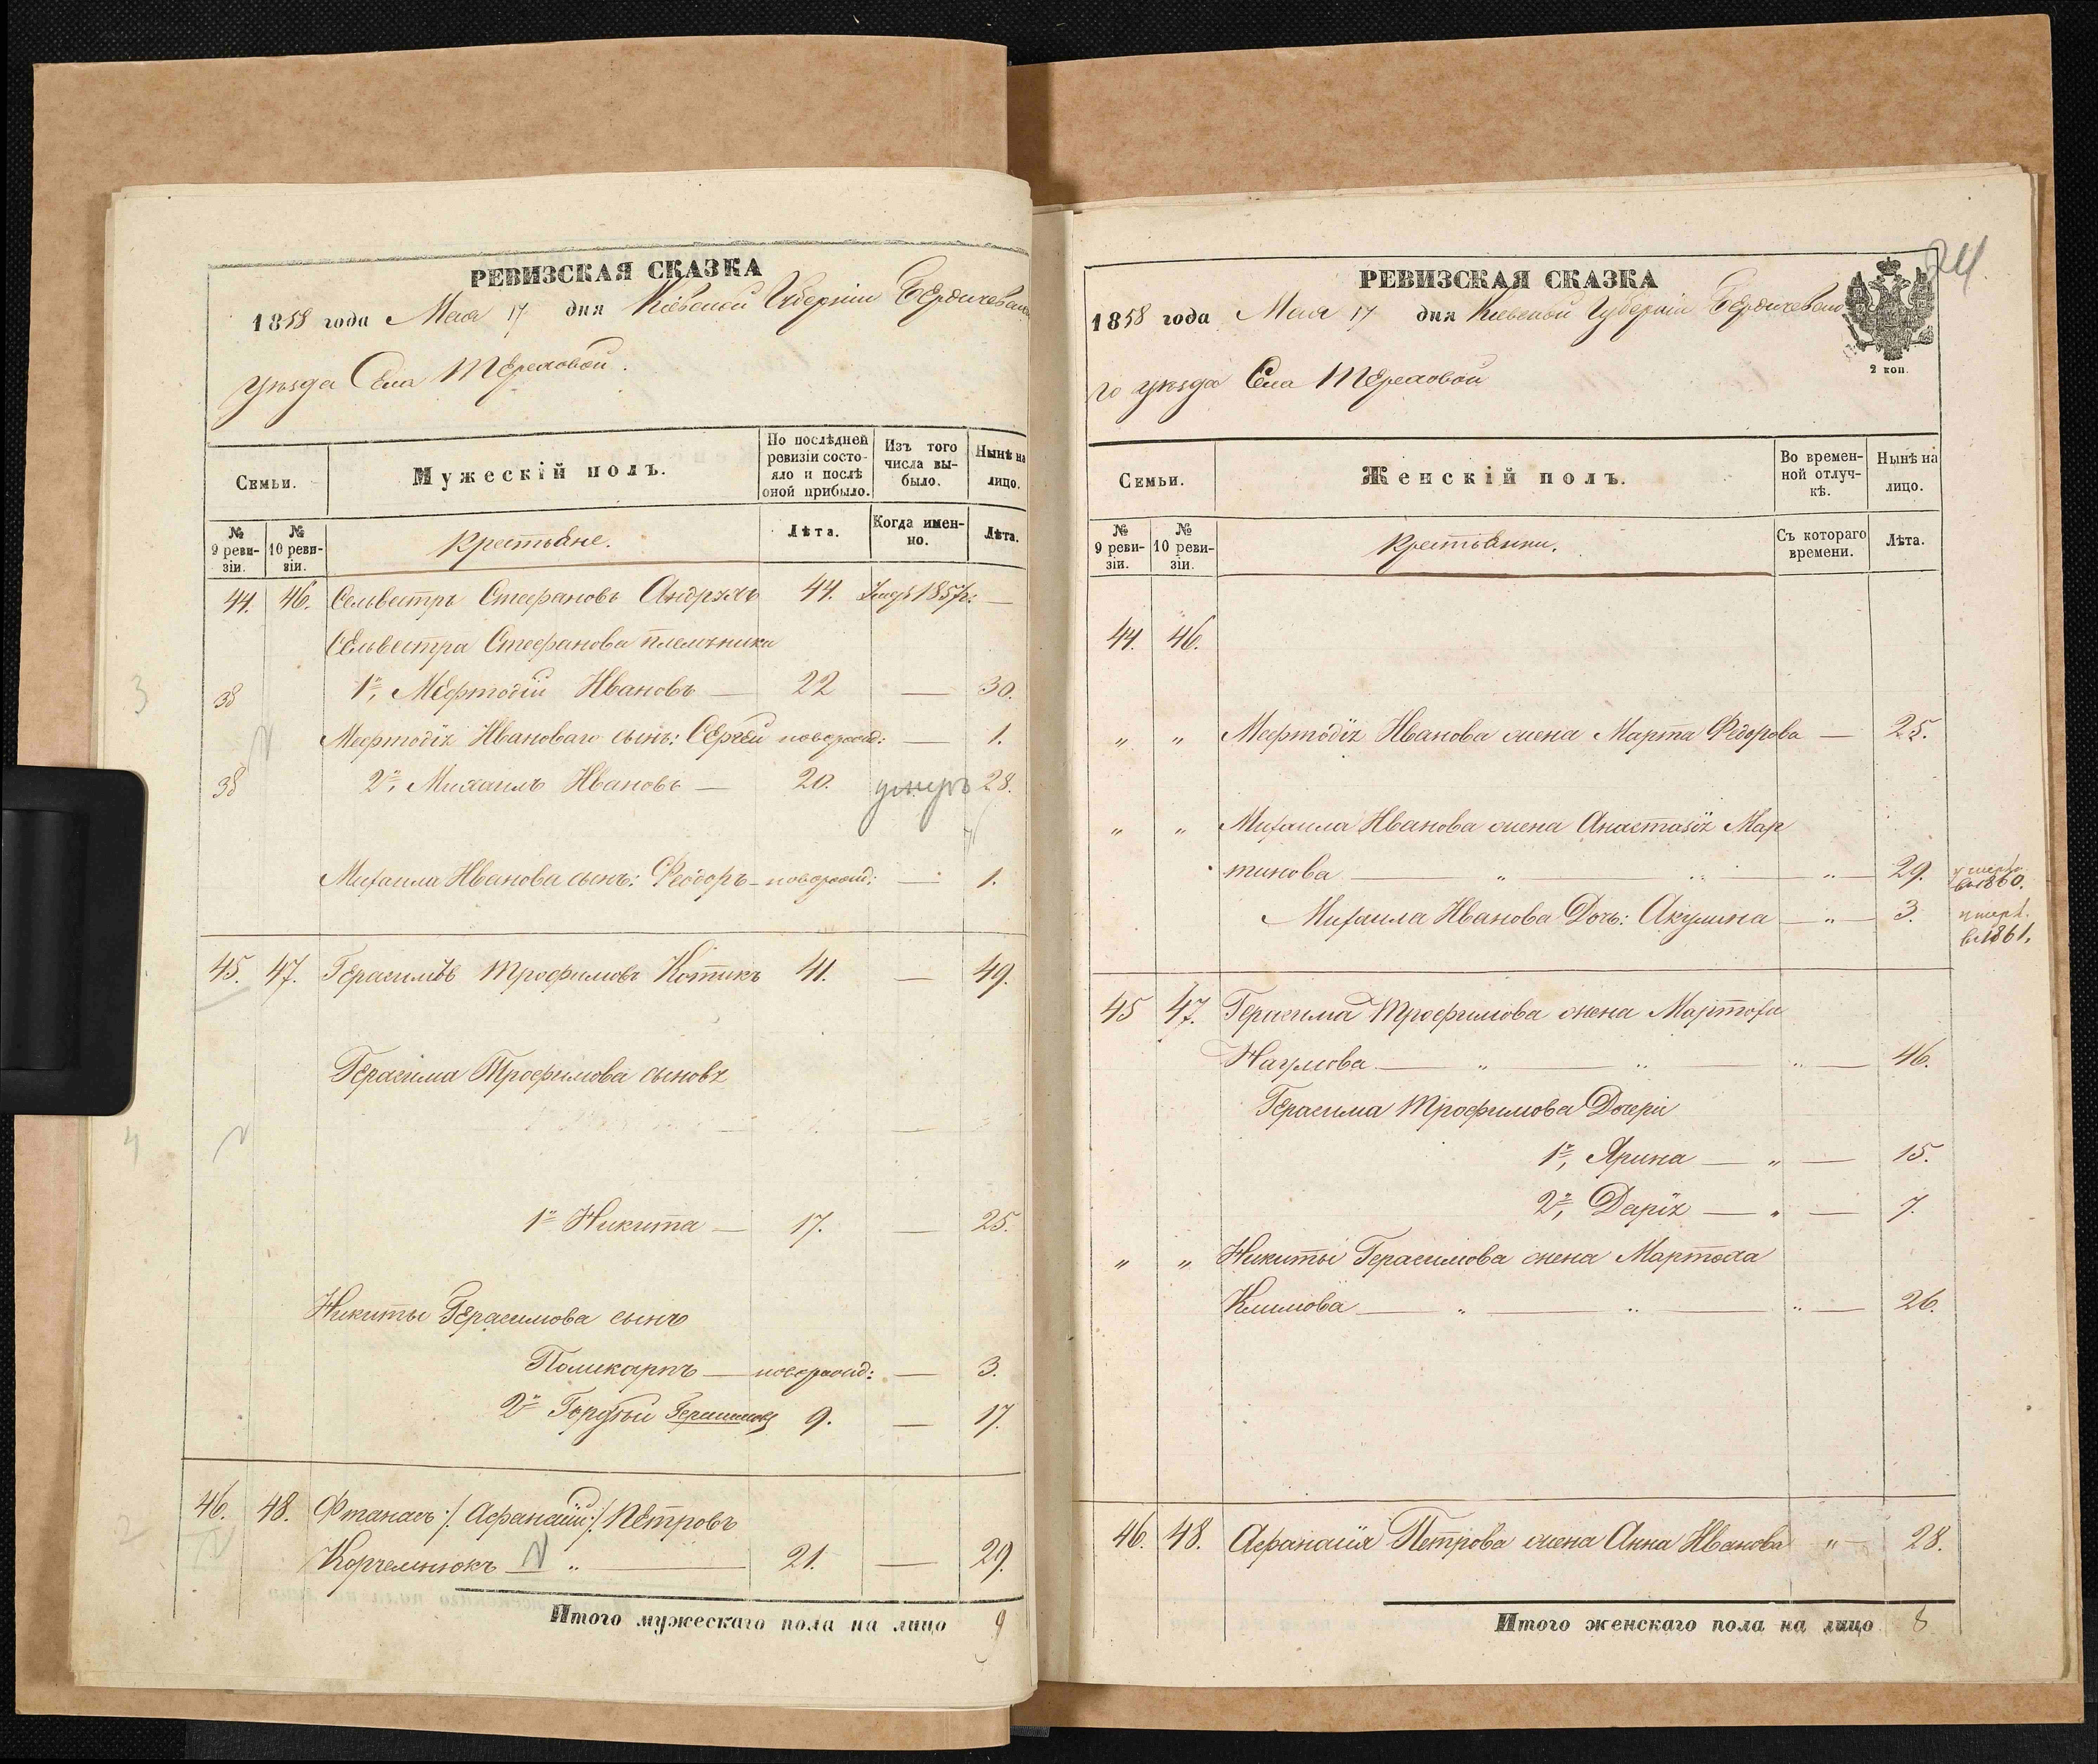 РЕВИЗСКАЯ СКАЗКА
1858 года Мая 17 дня Кіевской Губерніи Бердичевска
уѣзда Села Тереховой.
Семьи.
Мужескій полъ.
По послѣдней ревизіи состояло и послѣ оной прибыло.
Изъ того числа выбыло.
Нынѣ на лицо.
№ 9 ревизіи.
№ 10 ревизіи.
Крестьяне.
Лѣта.
Когда именно.
Лѣта.
44. 46. Сельвестръ Стефановъ Андрухъ 44. 1857г: —
Сельвестра Стефанова племѣники
38 1й, Мефтодій Ивановъ — 22 — 30.
Мефтодія Иванового сынъ: Сергѣй новорожд: — 1.
38 2й, Михаилъ Ивановъ — 20. умеръ 28.
Михаила Иванова сынъ: Феодоръ — новорожд: — 1.
45. 47. Герасимъ Трофимовъ Котикъ 41. — 49.
Герасима Трофимова сыновя
1й Никита — 17. — 25.
Никиты Герасимова сынъ
Поликарпъ — новорожд: — 3.
2й Гордѣй Герасимовъ 9. — 17.
46. 48. Фтанасъ :/ Афанасій :/ Петровъ
Корчемнюкъ N " — 21. — 29.
Итого мужескаго пола на лицо 9
24
РЕВИЗСКАЯ СКАЗКА
1858 года Мая 17 дня Кіевской Губерніи Бердичевска
го уѣзда Села Тереховой
2 коп.
Семьи.
Женскій полъ.
Во временной отлучкѣ.
Нынѣ на лицо.
№ 9 ревизіи.
№ 10 ревизіи.
Крестьянки.
Съ котораго времени.
Лѣта.
44. 46.
" " Мефтодія Иванова жена Марта Федорова — 25.
" " Михаила Иванова жена Анастазія Мар
тинова — " — " — 29. умерла въ 1860.
Михаила Иванова Дочь: Акулина — " — 3. умерл. въ 1861.
45 47. Герасима Трофимова жена Мартоха
Наумова — " — " — " — 46.
Герасима Трофимова Дочери
1я, Ярина — " — 15.
2я, Дарія — " — 7.
" " Никиты Герасимова жена Мартоха
Климова — " — " — " — 26.
46. 48. Афанасія Петрова жена Анна Иванова " — 28.
Итого женскаго пола на лицо 8